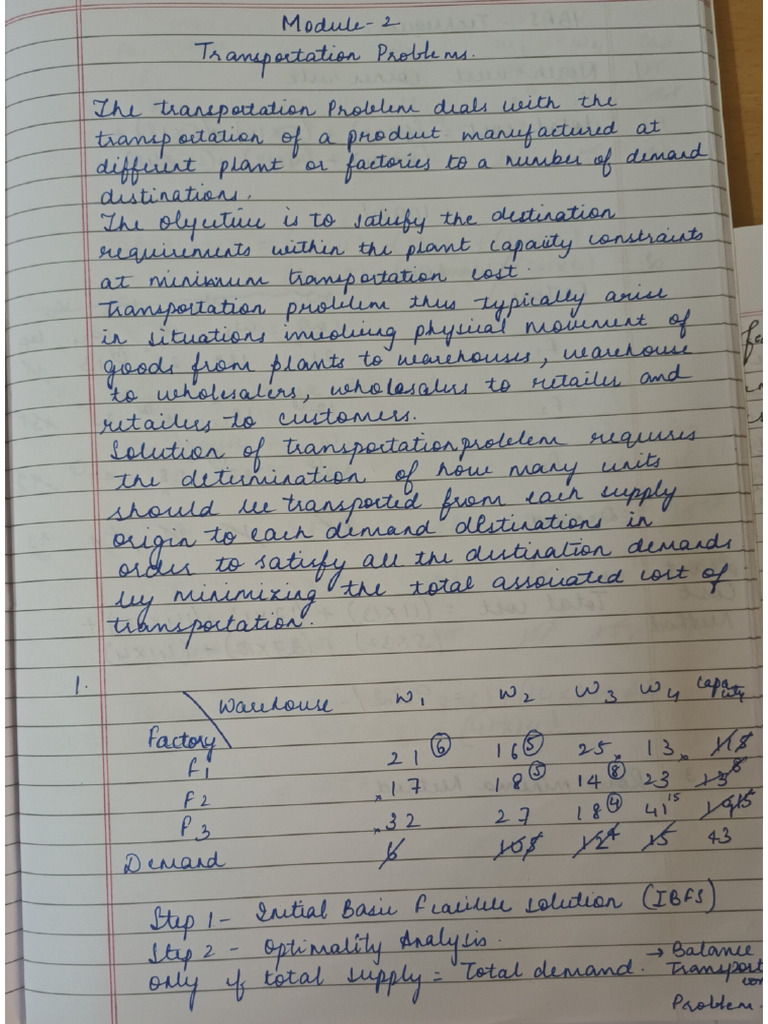 Module-2
Transportation Problems.
The transportation Problem deals with the
transportation of a product manufactured at
different plant or factories to a number of demand
destinations.
The objective is to satisfy the destination
requirements within the plant capacity constraints
at minimum transportation cost.
Transportation problem thus typically arise
in situations involving physical movement of
goods from plants to warehouses, warehouse
to wholesalers, wholesalers to retailer and
retailers to customers.
Solution of transportation problem requires
the determination of how many units
should be transported from each supply
origin to each demand destinations in
order to satisfy all the destination demands
by minimizing the total associated cost of
transportation.
1.
Warehouse W1 W2 W3 W4 Capacity
Factory
F1 21 6 16 5 25 13 11
F2 17 18 5 14 8 23 13 8
F3 32 27 18 4 41 15 19 15
Demand 6 10 5 12 4 15 43
Step 1 - Initial Basic Feasible solution (IBFS)
Step 2 - Optimality Analysis.
only if total supply = Total demand. → Balance
Transport
Problem.